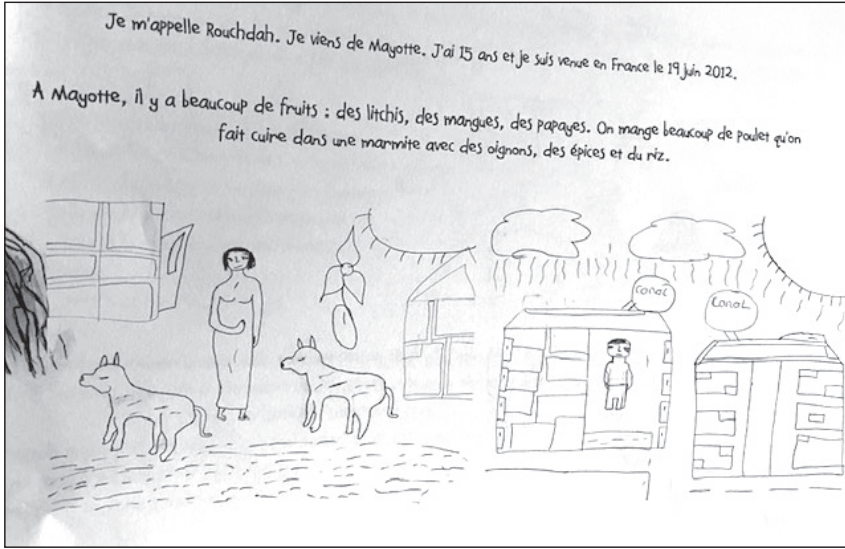 Je m'appelle Rouchdah. Je viens de Mayotte. J'ai 15 ans et je suis venue en France le 19 juin 2012.
A Mayotte, il y a beaucoup de fruits : des litchis, des mangues, des papayes. On mange beaucoup de poulet qu'on
fait cuire dans une marmite avec des oignons, des épices et du riz.
canal
canal